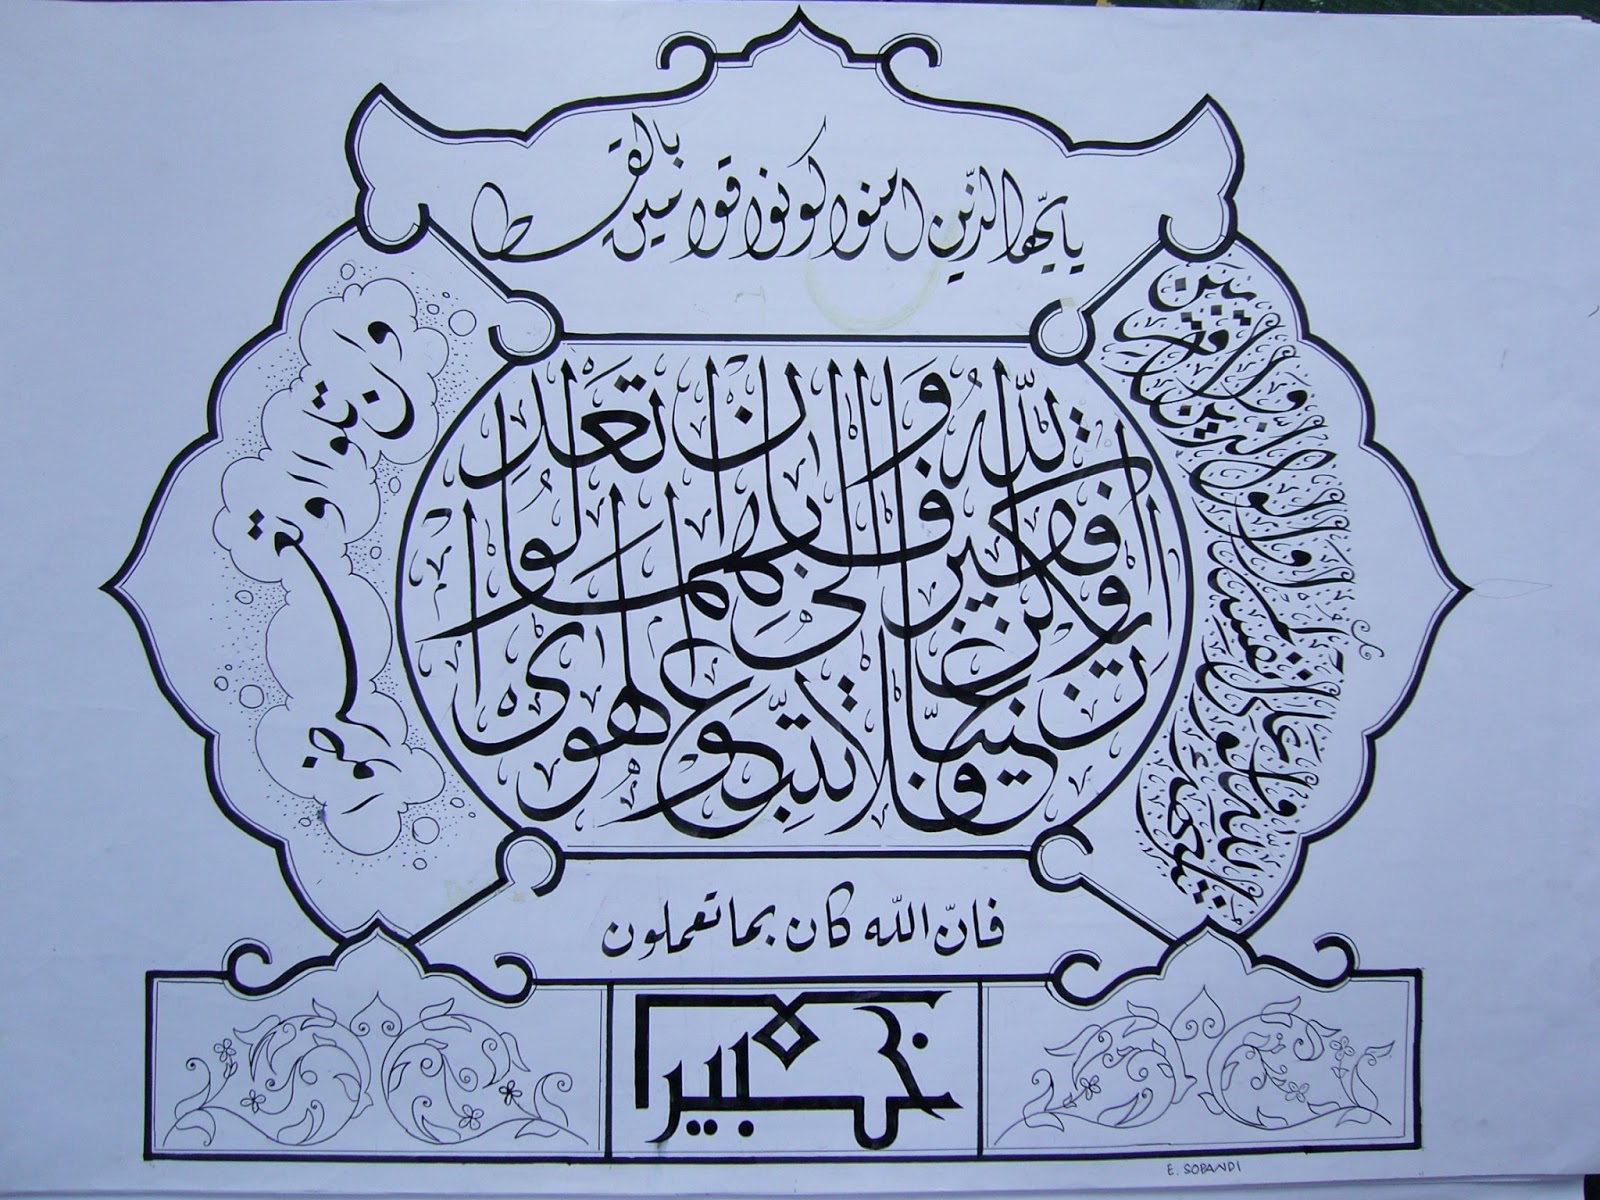 يايّها الذّين امنوا كونوا قوامين بالقسط
شهداء لله ولو على انفسكم او الوالدين والاقربين
ان يكن غنيّا او فقيرا فالله اولى بهما فلا تتّبعوا الهوى ان تعدلوا
وان تلوا او تعرضوا
فانّ اللّه كان بما تعملون
خبيرا
E. SOBANDI